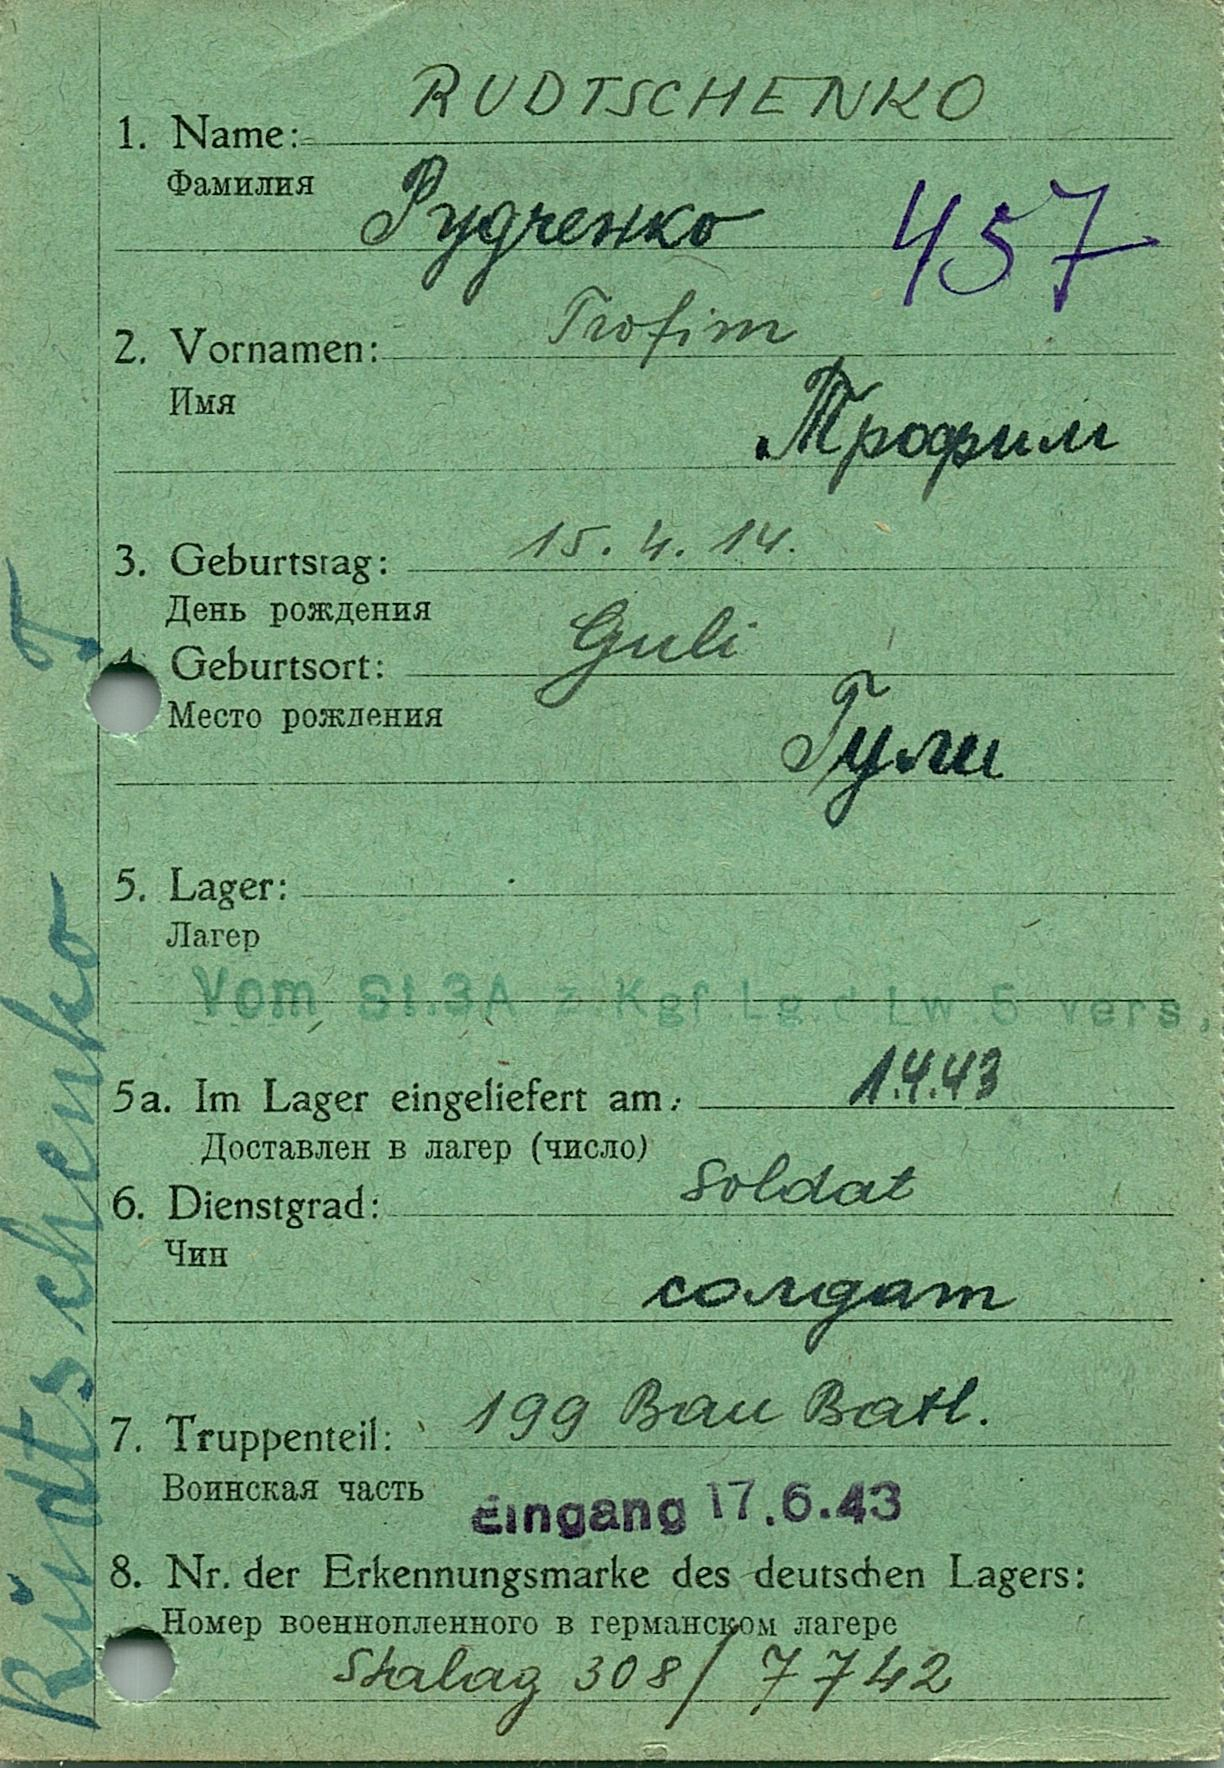 RUDTSCHENKO
1. Name:
Фамилия
Рудченко
457
Trofim
2. Vornamen:
Имя
Трофим
3. Geburtstag: 15. 4. 14.
День рождения
4. Geburtsort: Guli
Место рождения
Гули
5. Lager:
Лагер
Vom St.3A z.Kgf.Lg.d Lw.5 vers.
5a. Im Lager eingeliefert am: 1.4.43
Доставлен в лагер (число)
6. Dienstgrad: Soldat
Чин
солдат
7. Truppenteil: 199 Bau Batl.
Воинская часть
Eingang 17.6.43
8. Nr. der Erkennungsmarke des deutschen Lagers:
Номер военнопленного в германском лагере
Stalag 308/ 7742
Rŭdtschenko T